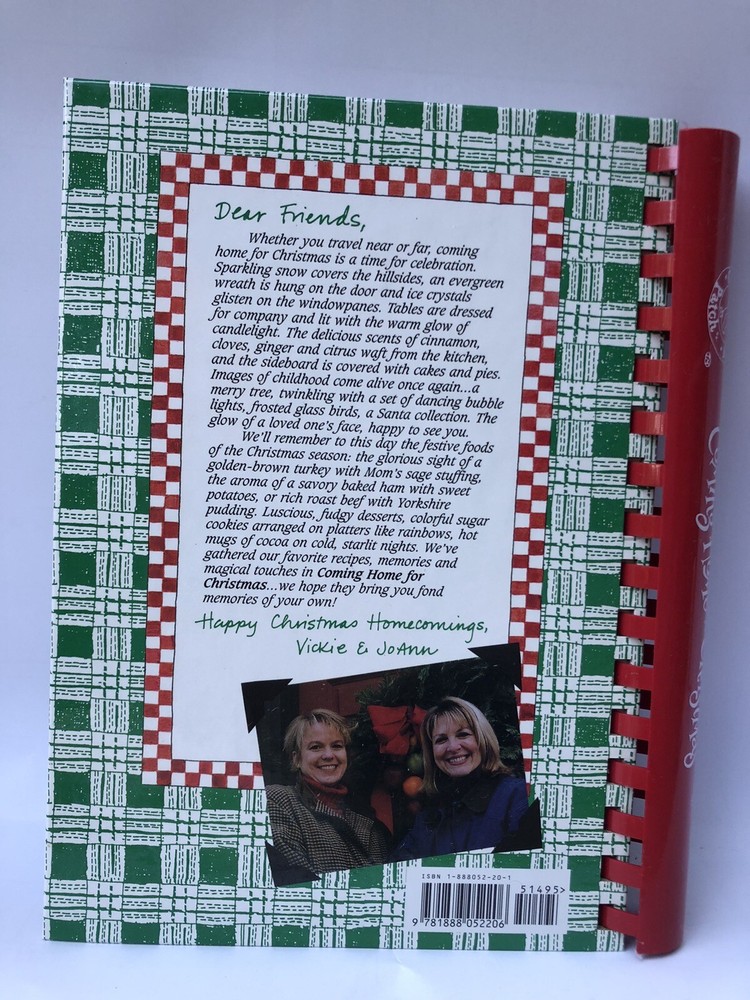 Dear Friends,
Whether you travel near or far, coming
home for Christmas is a time for celebration.
Sparkling snow covers the hillsides, an evergreen
wreath is hung on the door and ice crystals
glisten on the windowpanes. Tables are dressed
for company and lit with the warm glow of
candlelight. The delicious scents of cinnamon,
cloves, ginger and citrus waft from the kitchen,
and the sideboard is covered with cakes and pies.
Images of childhood come alive once again...a
merry tree, twinkling with a set of dancing bubble
lights, frosted glass birds, a Santa collection. The
glow of a loved one's face, happy to see you.
We'll remember to this day the festive foods
of the Christmas season: the glorious sight of a
golden-brown turkey with Mom's sage stuffing,
the aroma of a savory baked ham with sweet
potatoes, or rich roast beef with Yorkshire
pudding. Luscious, fudgy desserts, colorful sugar
cookies arranged on platters like rainbows, hot
mugs of cocoa on cold, starlit nights. We've
gathered our favorite recipes, memories and
magical touches in Coming Home for
Christmas...we hope they bring you fond
memories of your own!
Happy Christmas Homecomings,
Vickie & JoAnn
ISBN 1-888052-20-1
51495>
9 781888 052206
Patch